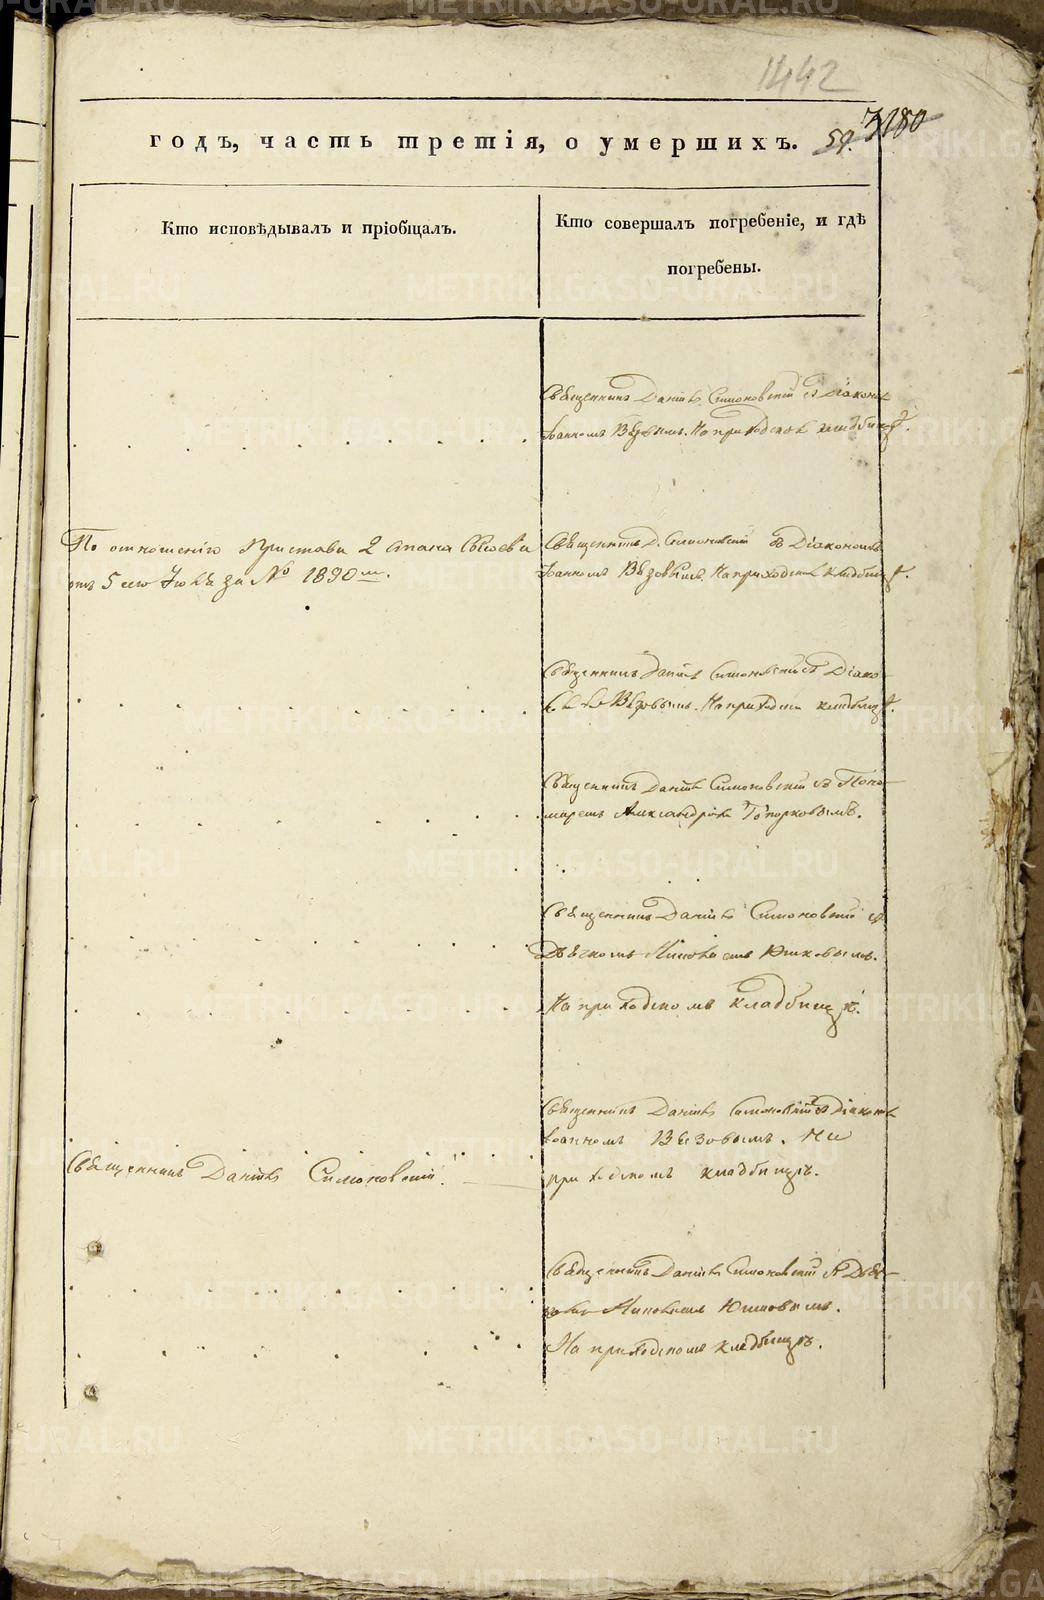 1442
годъ, часть третія, о умершихъ.
59.
180
Кто исповѣдывалъ и пріобщалъ.
Кто совершалъ погребеніе, и гдѣ
погребены.
Священникъ Даніилъ Симоновскій съ Діакономъ
Іоанномъ Вязовымъ. На приходскомъ кладбищѣ.
По отношенію Пристава 2 стана
отъ 5 сего Іюля за № 1890м.
Священникъ Д. Симоновскій съ Діакономъ
Іоанномъ Вязовымъ. На приходскомъ кладбищѣ.
Священникъ Даніилъ Симоновскій съ Діако-
Вязовымъ. На приходском кладбищѣ.
Священникъ Даніилъ Симоновскій съ Поно-
маремъ Александромъ Топорковымъ.
Священникъ Даніилъ Симоновскій съ
Дьячкомъ Юшковымъ.
На приходскомъ кладбищѣ.
Священникъ Даніилъ Симоновскій.
Священникъ Даніилъ Симоновскій съ Діакономъ
Іоанномъ Вязовымъ. На
приходскомъ кладбищѣ.
Священникъ Даніилъ Симоновскій съ Дьяч-
комъ Юшковымъ.
На приходскомъ кладбищѣ.
METRIKI.GASO-URAL.RU